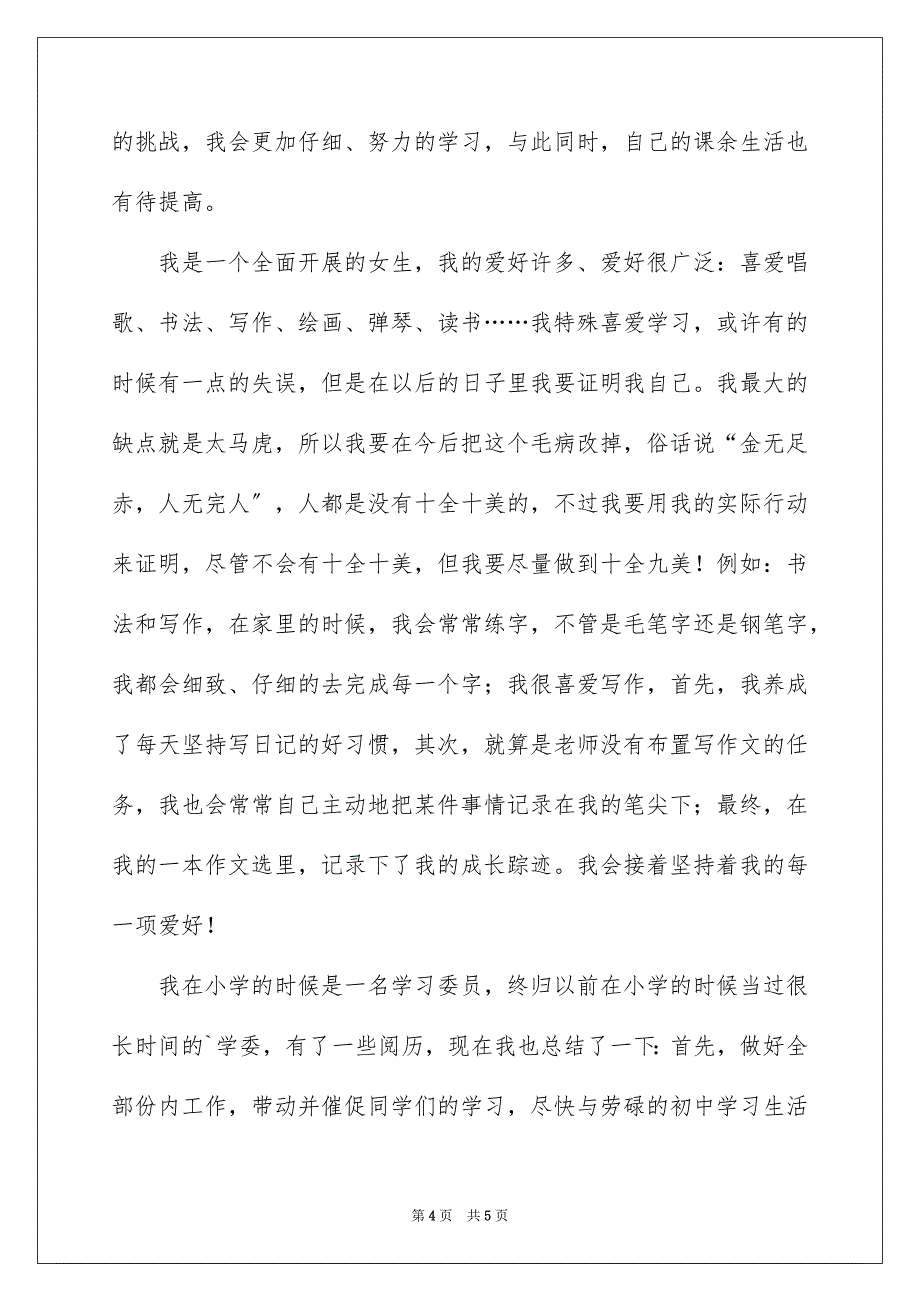 的挑战，我会更加仔细、努力的学习，与此同时，自己的课余生活也
有待提高。
我是一个全面开展的女生，我的爱好许多、爱好很广泛：喜爱唱
歌、书法、写作、绘画、弹琴、读书……我特殊喜爱学习，或许有的
时候有一点的失误，但是在以后的日子里我要证明我自己。我最大的
缺点就是太马虎，所以我要在今后把这个毛病改掉，俗话说“金无足
赤，人无完人〞，人都是没有十全十美的，不过我要用我的实际行动
来证明，尽管不会有十全十美，但我要尽量做到十全九美！例如：书
法和写作，在家里的时候，我会常常练字，不管是毛笔字还是钢笔字，
我都会细致、仔细的去完成每一个字；我很喜爱写作，首先，我养成
了每天坚持写日记的好习惯，其次，就算是老师没有布置写作文的任
务，我也会常常自己主动地把某件事情记录在我的笔尖下；最终，在
我的一本作文选里，记录下了我的成长踪迹。我会接着坚持着我的每
一项爱好！
我在小学的时候是一名学习委员，终归以前在小学的时候当过很
长时间的`学委，有了一些阅历，现在我也总结了一下：首先，做好全
部份内工作，带动并催促同学们的学习，尽快与劳碌的初中学习生活
第4页 共5页